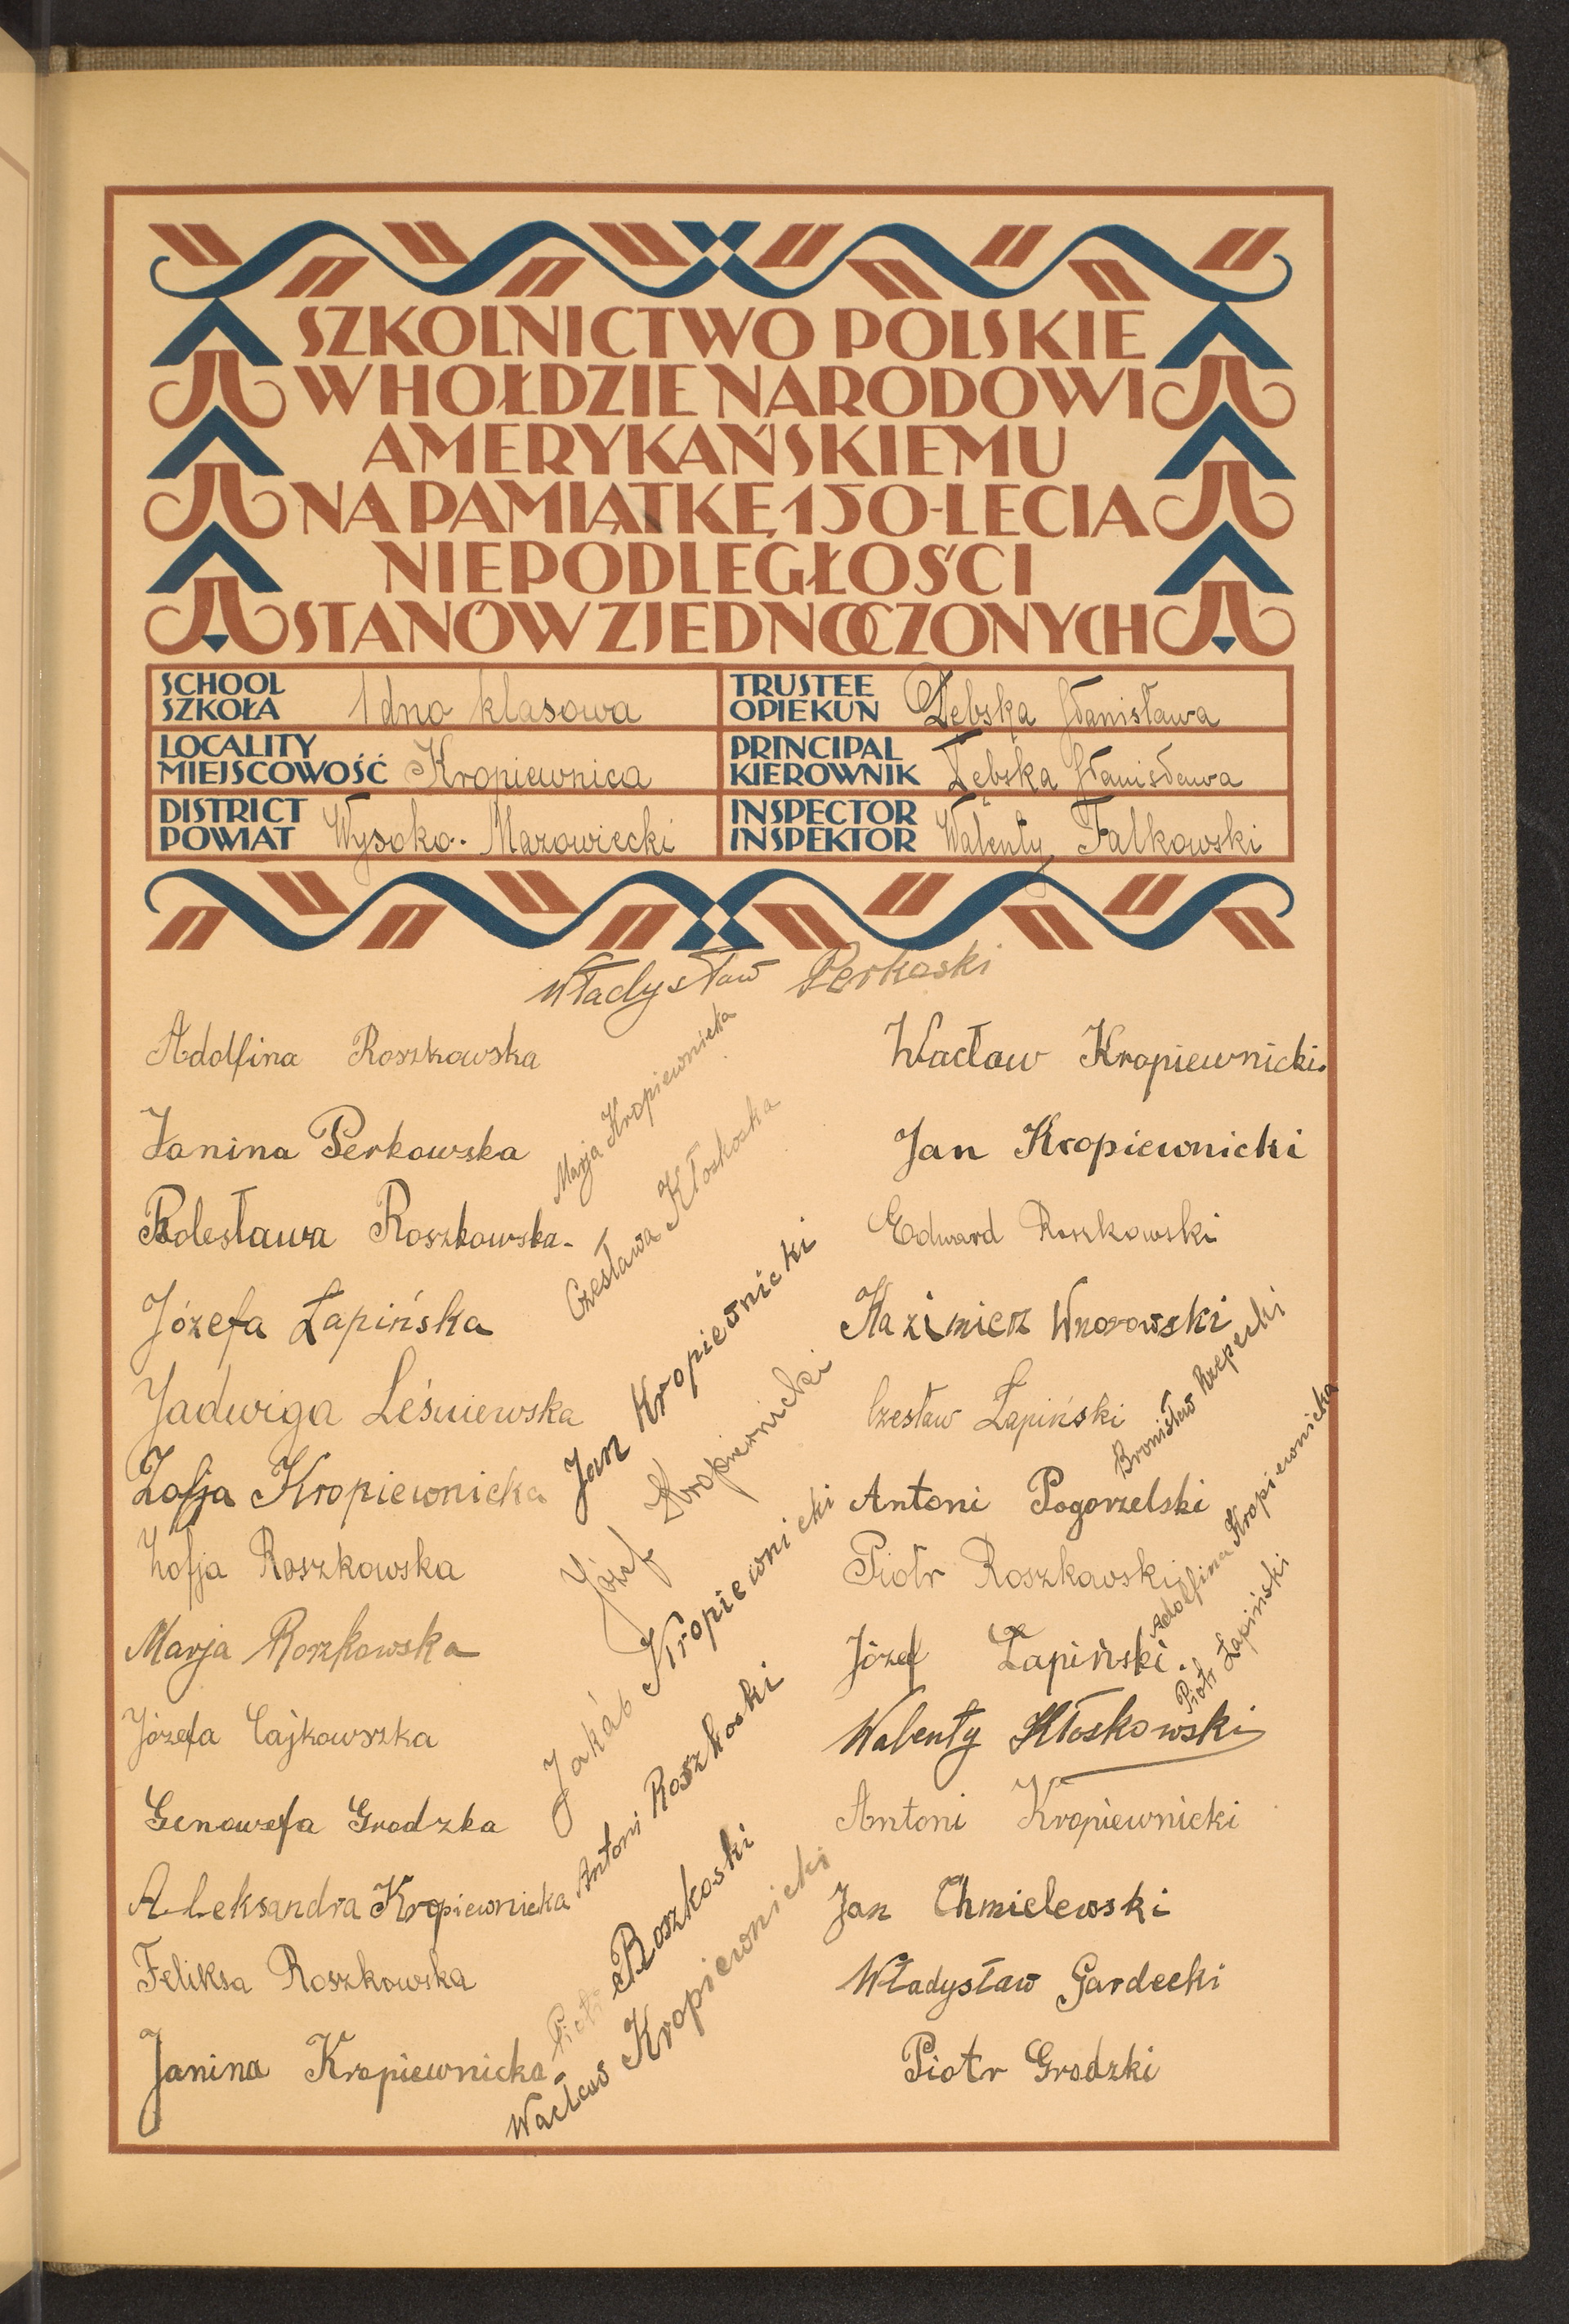 SZKOLNICTWO POLSKIE
W HOŁDZIE NARODOWI
AMERYKAŃSKIEMU
NA PAMIĄTKĘ 150-LECIA
NIEPODLEGŁOŚCI
STANÓW ZJEDNOCZONYCH
SCHOOL
SZKOŁA 1dno klasowa
TRUSTEE
OPIEKUN Dębska Stanisława
LOCALITY
MIEJSCOWOŚĆ Kropiewnica
PRINCIPAL
KIEROWNIK Dębska Stanisława
DISTRICT
POWIAT Wysoko-Mazowiecki
INSPECTOR
INSPEKTOR Walenty Falkowski
Władysław Perkoski
Adolfina Roszkowska
Janina Perkowska
Bolesława Roszkowska.
Józefa Łapińska
Jadwiga Leśniewska
Zofja Kropiewnicka
Zofja Roszkowska
Marja Roszkowska
Józefa Cajkowszka
Genowefa Grodzka
Aleksandra Kropiewnicka
Feliksa Roszkowska
Janina Kropiewnicka
Marja Kropiewnicka
Czesława Kłoskoska
Jan Kropiewnicki
Józef Kropiewnicki
Jakób Kropiewnicki
Antoni Roszkoski
Piotr Roszkoski
Wacław Kropiewnicki
Wacław Kropiewnicki.
Jan Kropiewnicki
Edward Roszkowski
Kazimierz Wnorowski
Czesław Łapiński
Antoni Pogorzelski
Piotr Roszkowski
Józef Łapiński.
Walenty Kłoskowski
Antoni Kropiewnicki
Jan Chmielewski
Władysław Gardecki
Piotr Grodzki
Bronisław Rzepecki
Adolfina Kropiewnicka
Piotr Łapiński